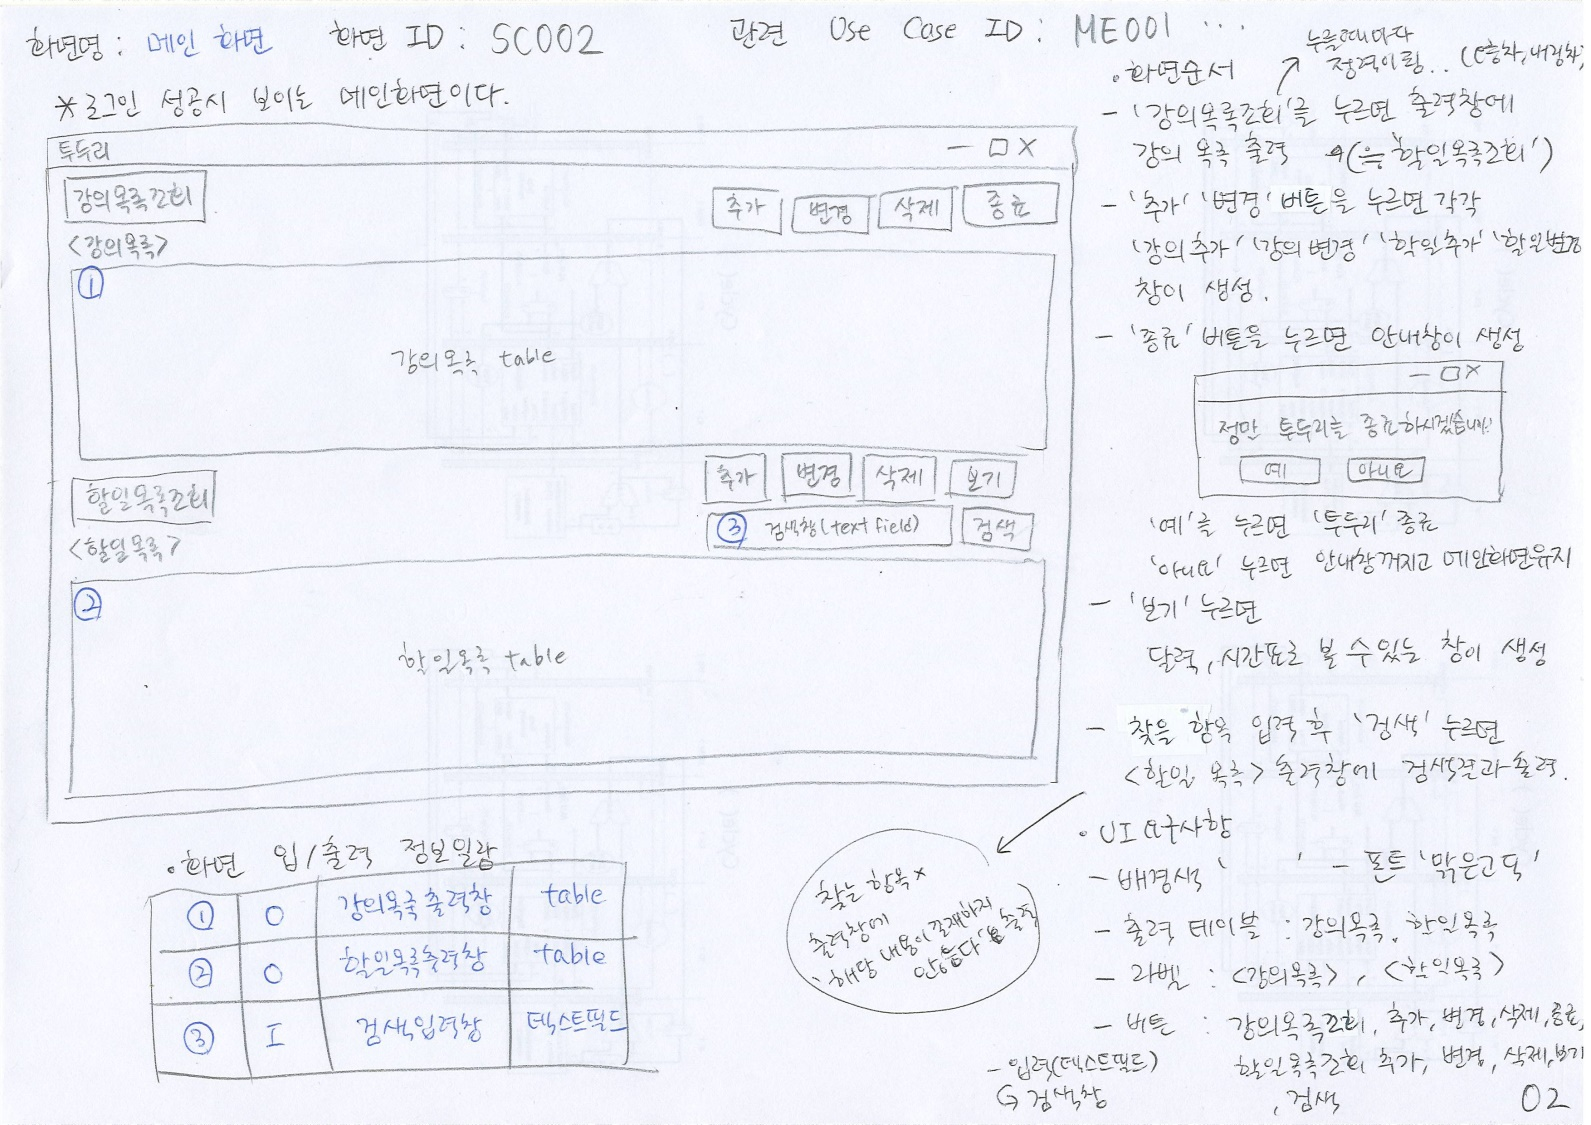 화면명 : 메인 화면 화면 ID : SC002 관련 Use Case ID : ME001 ...
* 로그인 성공시 보이는 메인화면이다.
투두리 — □ X
강의목록조회 추가 변경 삭제 종료
<강의목록>
①
강의목록 table
할일목록조회 추가 변경 삭제 보기
<할일목록> ③ 검색창(text field) 검색
②
할일목록 table
• 화면 입/출력 정보일람
① O 강의목록출력창 table
② O 할일목록출력창 table
③ I 검색입력창 텍스트필드
누를때마다
• 화면순서 정렬이됨.. (오름차, 내림차)
- '강의목록조회'를 누르면 출력창에
강의 목록 출력 (는 '할일목록조회')
- '추가' '변경' 버튼을 누르면 각각
'강의추가' '강의변경' '할일추가' '할일변경'
창이 생성.
- '종료' 버튼을 누르면 안내창이 생성
— □ X
정말 투두리를 종료하시겠습니까?
예 아니요
'예'를 누르면 '투두리' 종료
'아니요' 누르면 안내창꺼지고 메인화면유지
- '보기' 누르면
달력, 시간표로 볼 수 있는 창이 생성
- 찾을 항목 입력 후 '검색' 누르면
<할일 목록> 출력창에 검색결과 출력.
찾는 항목 x
출력창에
'해당 내용이 존재하지
않습니다' 출력
• UI 요구사항
- 배경색 ' ' - 폰트 '맑은고딕'
- 출력 테이블 : 강의목록, 할일목록
- 라벨 : <강의목록>, <할일목록>
- 버튼 : 강의목록조회, 추가, 변경, 삭제, 종료,
할일목록조회 추가, 변경, 삭제, 보기
, 검색
- 입력(텍스트필드)
↳ 검색창
02